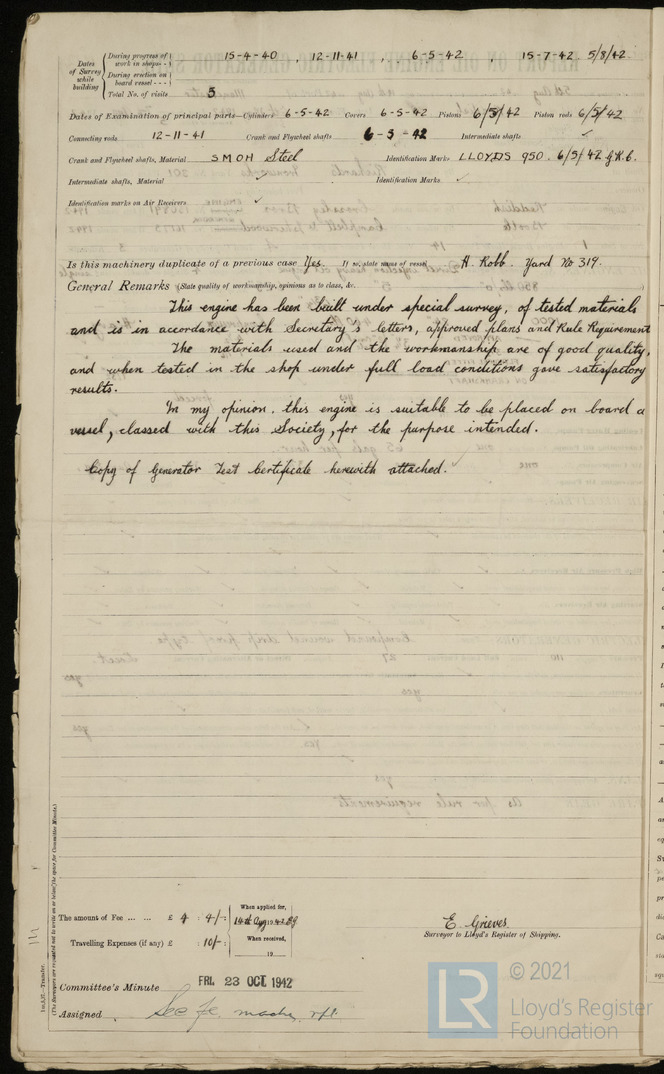 Dates of Survey while building
During progress of work in shops - - 15-4-40, 12-11-41, 6-5-42, 15-7-42 5/8/42
During erection on board vessel - - -
Total No. of visits 5
Dates of Examination of principal parts—Cylinders 6-5-42 Covers 6-5-42 Pistons 6/5/42 Piston rods 6/5/42
Connecting rods 12-11-41 Crank and Flywheel shafts 6-5-42 Intermediate shafts ✓
Crank and Flywheel shafts, Material SMOH Steel Identification Marks LLOYDS 950. 6/5/42 G.K.C.
Intermediate shafts, Material ✓ Identification Marks ✓
Identification marks on Air Receivers ✓
Is this machinery duplicate of a previous case Yes. If so, state name of vessel H. Robb. Yard No 319.
General Remarks (State quality of workmanship, opinions as to class, &c.
This engine has been built under special survey, of tested materials
and is in accordance with Secretary's letters, approved plans and Rule Requirement
The materials used and the workmanship are of good quality,
and when tested in the shop under full load conditions gave satisfactory
results.
In my opinion, this engine is suitable to be placed on board a
vessel, classed with this Society, for the purpose intended.
Copy of Generator Test Certificate herewith attached.
The amount of Fee ... ... £ 4 : 4/- :
When applied for,
14th Aug 1942
Travelling Expenses (if any) £ : 10/- :
When received,
19
E. Grieves
Surveyor to Lloyd's Register of Shipping.
Committee's Minute FRI. 23 OCT 1942
Assigned See Je machy rpt.
(The Surveyors are requested not to write on or below the space for Committee Minute.)
© 2021
LR
Lloyd's Register
Foundation